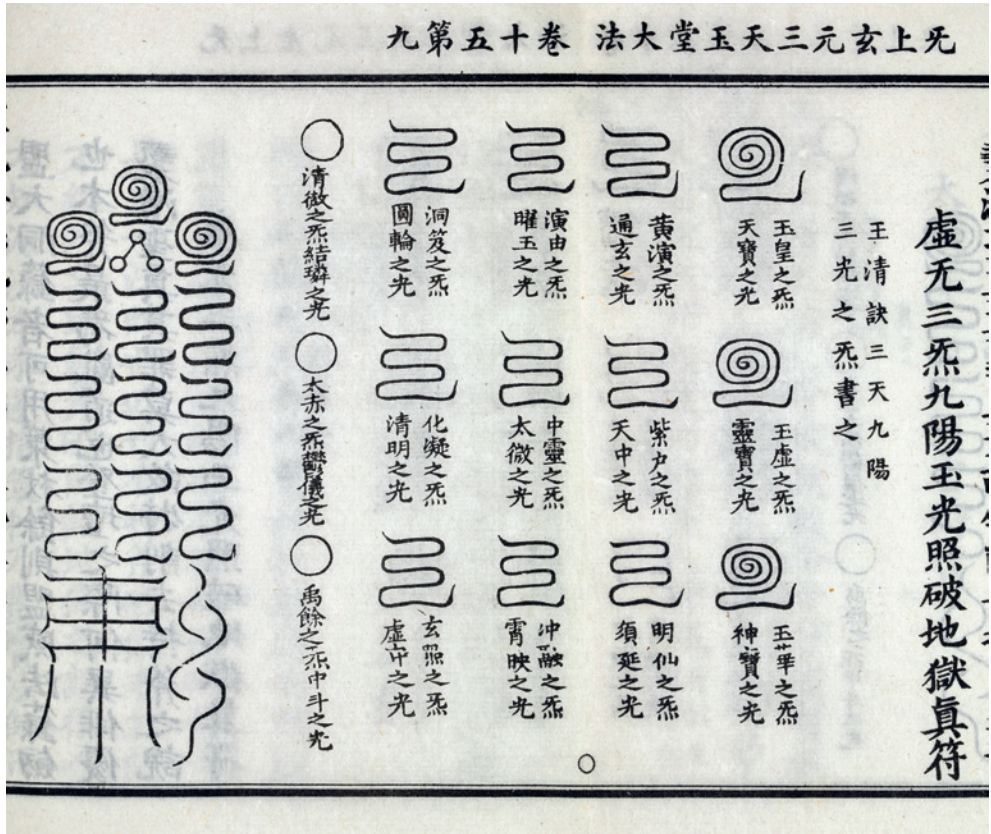 无上玄元三天玉堂大法 卷十五第九
虛无三炁九陽玉光照破地獄眞符
王清訣三天九陽
三光之炁書之
玉皇之炁
天寶之光
玉虛之炁
靈寶之光
玉華之炁
神寶之光
黃演之炁
通玄之光
紫户之炁
天中之光
明仙之炁
須延之光
演由之炁
曜玉之光
中靈之炁
太微之光
冲融之炁
霄映之光
洞笈之炁
圓輪之光
化凝之炁
清明之光
玄照之炁
虛之光
清微之炁結璘之光
太赤之炁鬱儀之光
禹餘之炁中斗之光